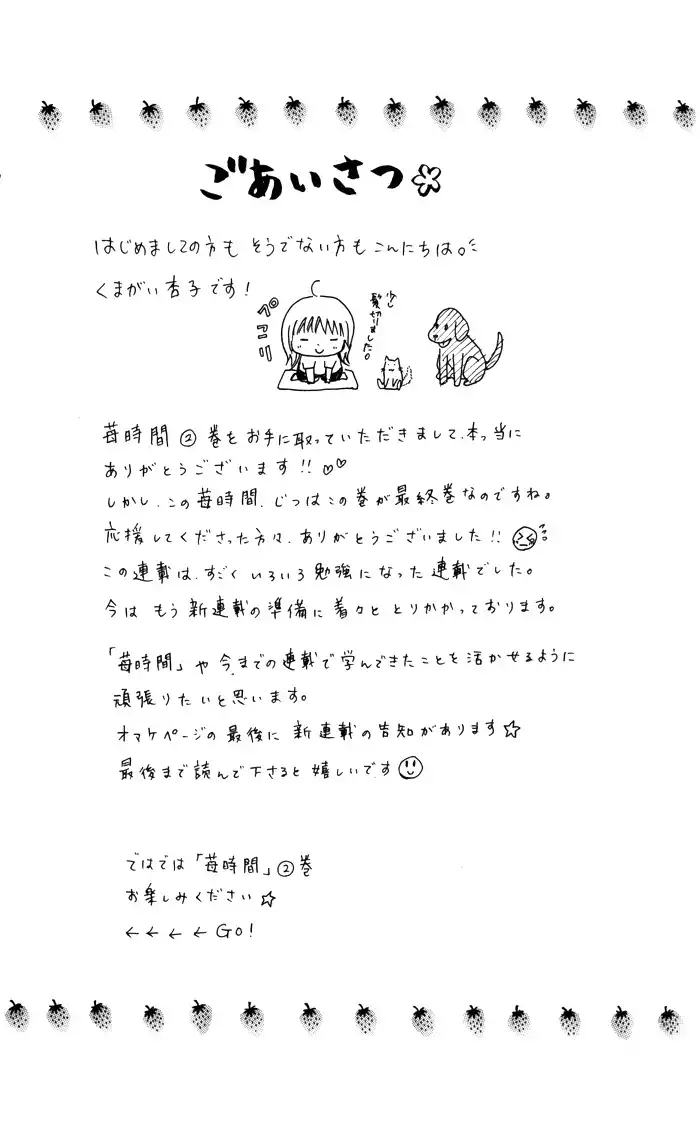 ごあいさつ
はじめましての方も そうでない方も こんにちは。
くまがい杏子です!
ペコリ
少し
髪切りました。
苺時間②巻をお手に取っていただきまして、本っ当に
ありがとうございます!!♡♡
しかし、この苺時間、じつはこの巻が最終巻なのですね。
応援してくださった方々、ありがとうございました!!
この連載は、すごくいろいろ勉強になった連載でした。
今はもう新連載の準備に着々ととりかかっております。
「苺時間」や今までの連載で学んできたことを活かせるように
頑張りたいと思います。
オマケページの最後に新連載の告知があります☆
最後まで読んで下さると嬉しいです
ではでは「苺時間」②巻
お楽しみください☆
←←←←GO!